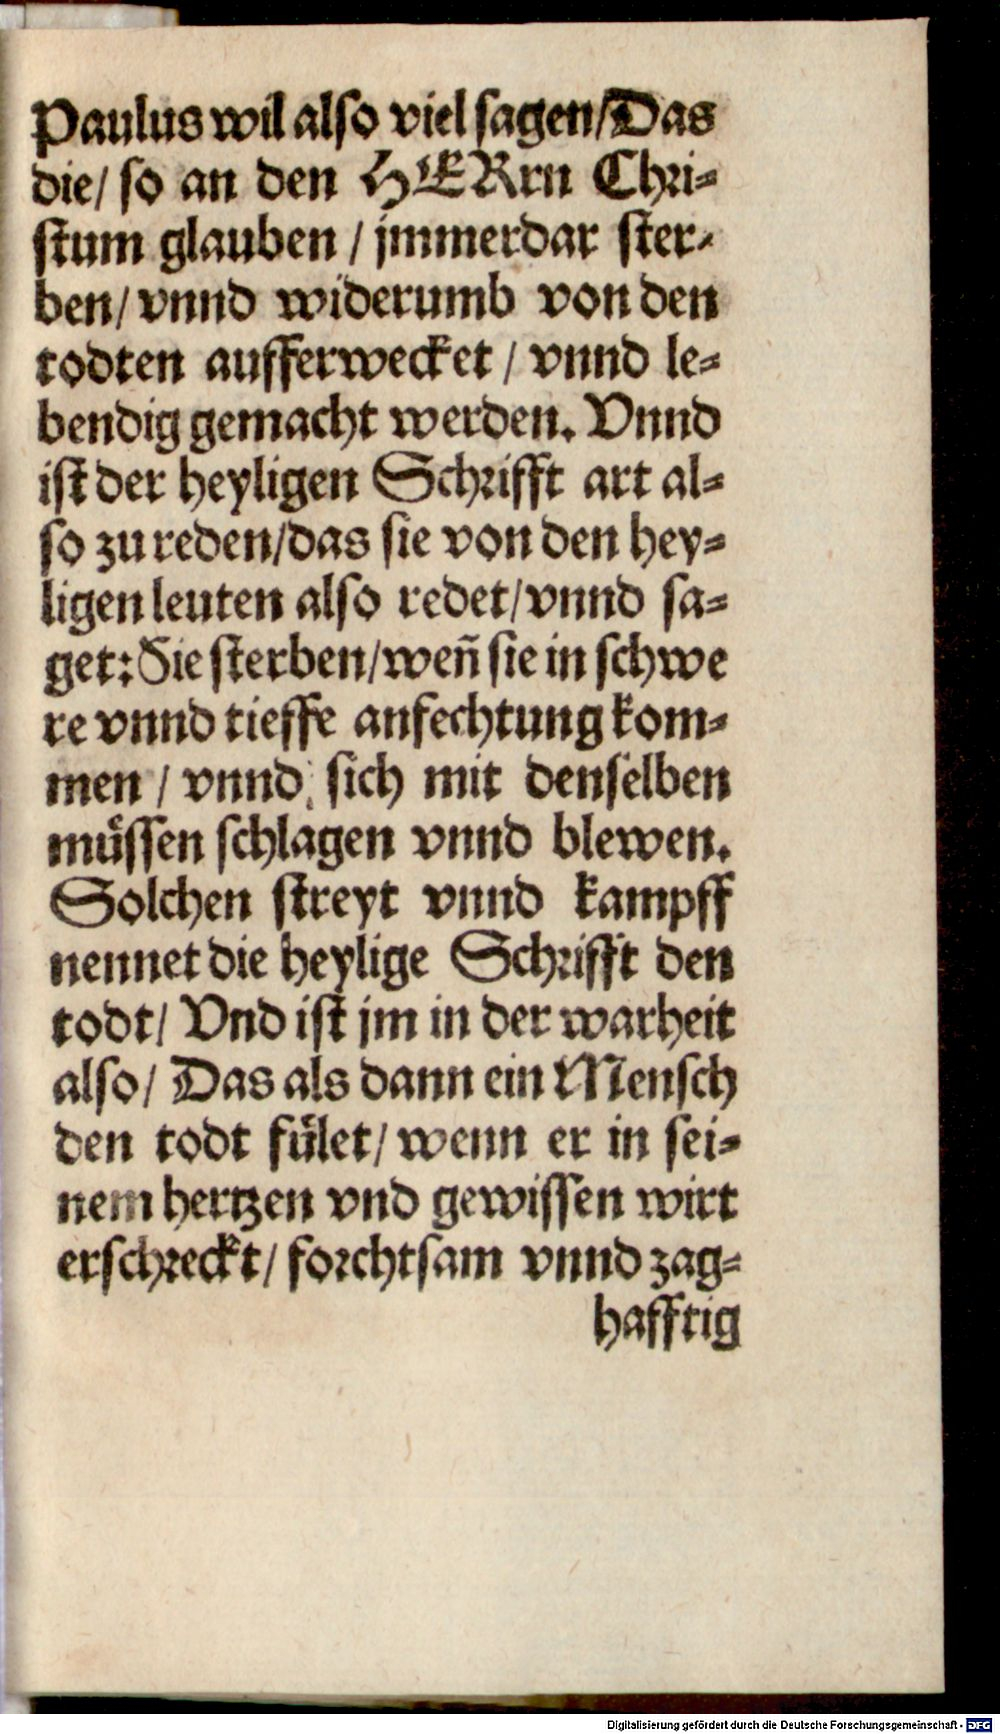 Paulus wil also viel sagen/Das
die/ so an den HERrn Chri-
stum glauben / jmmerdar ster-
ben/ vnnd widerumb von den
todten aufferwecket / vnnd le-
bendig gemacht werden. Vnnd
ist der heyligen Schrifft art al-
so zu reden/das sie von den hey-
ligen leuten also redet/vnnd sa-
get: Sie sterben/weñ sie in schwe
re vnnd tieffe anfechtung kom-
men / vnnd sich mit denselben
müssen schlagen vnnd blewen.
Solchen streyt vnnd kampff
nennet die heylige Schrifft den
todt/ Vnd ist jm in der warheit
also/ Das als dann ein Mensch
den todt fület/ wenn er in sei-
nem hertzen vnd gewissen wirt
erschreckt/ forchtsam vnnd zag-
hafftig
Digitalisierung gefördert durch die Deutsche Forschungsgemeinschaft - DFG